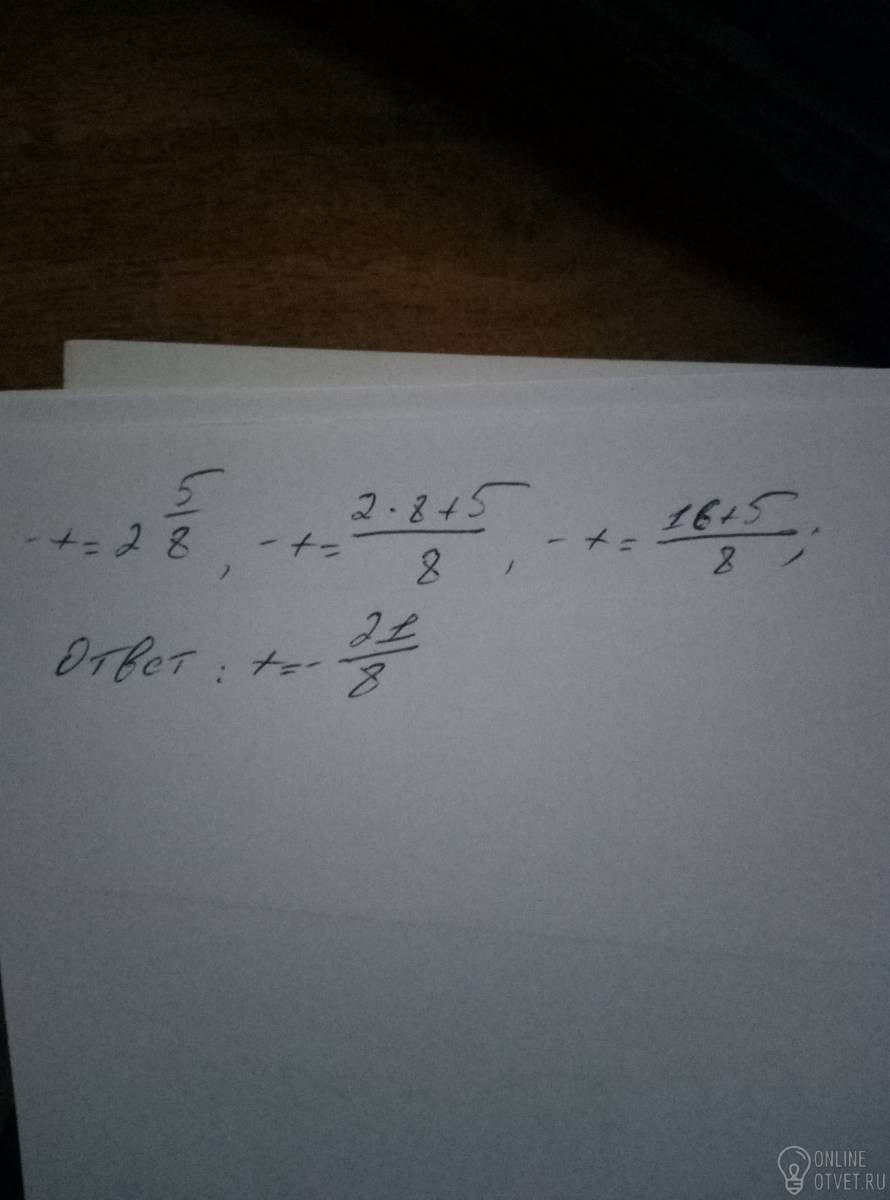 -t = 2 5/8, -t = (2·8+5)/8, -t = (16+5)/8;
Ответ: t = - 21/8
ONLINE
OTVET.RU